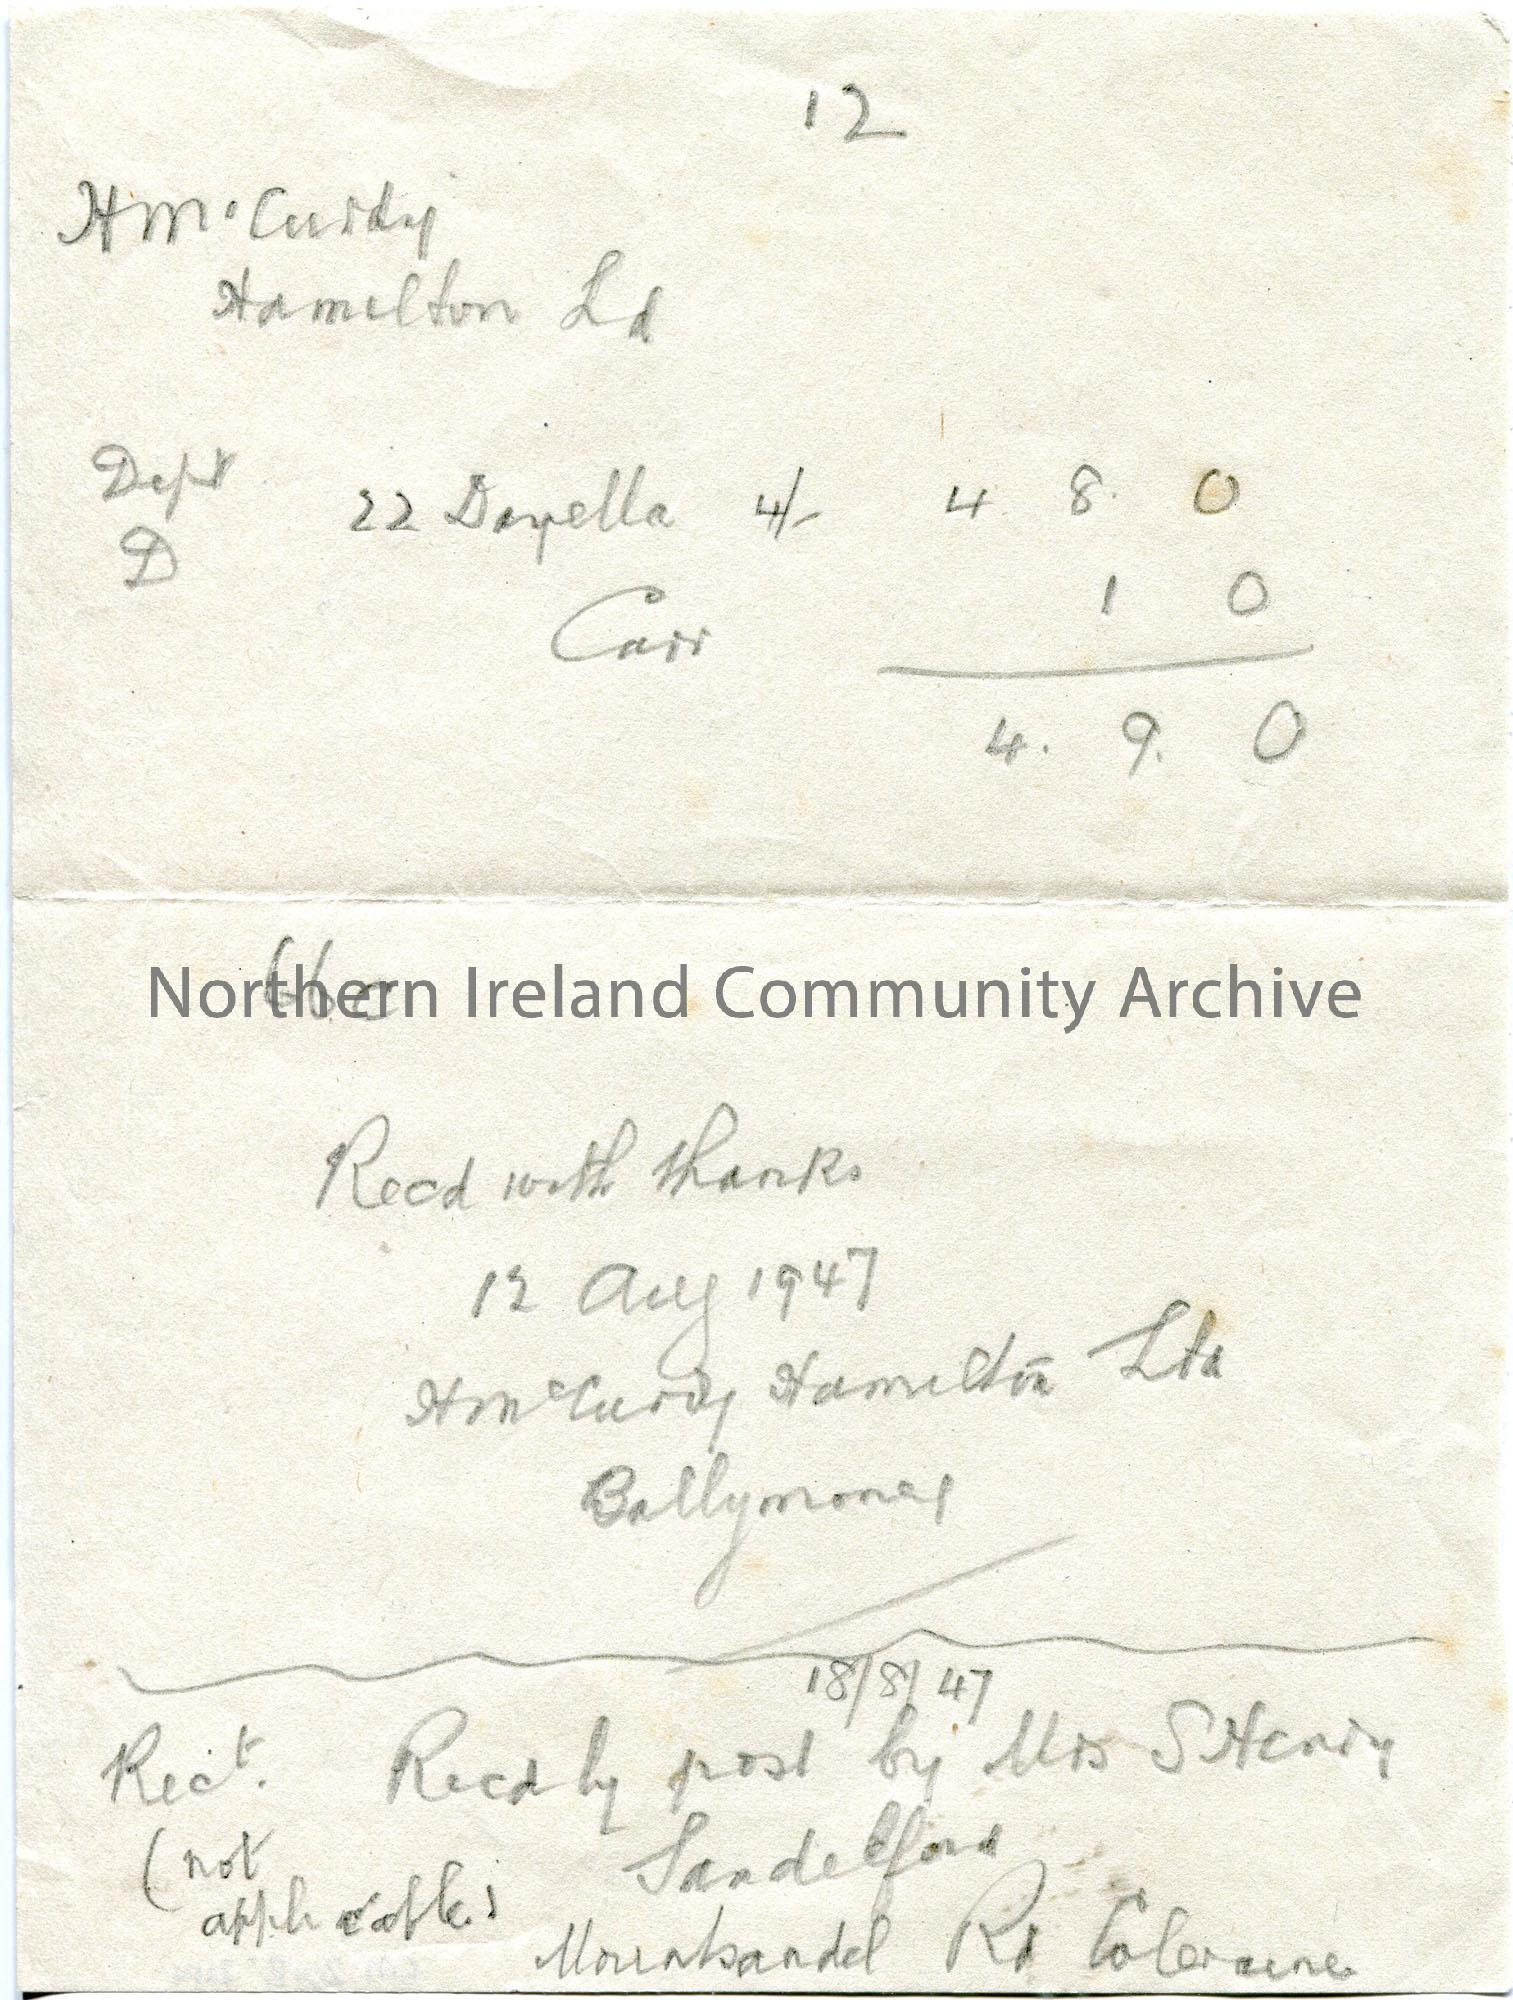 12
H McCurdy
Hamilton Ld
Dept
D
22 Dayella 4/- 4 8. 0
Carr 1 0
4. 9. 0
Northern Ireland Community Archive
Recd with thanks
12 Aug 1947
H McCurdy Hamilton Ltd
Ballymoney
18/8/47
Rect. Recd by post by Mrs S Henry
(not applicable)
Sandelford
Mountsandel Rd Coleraine